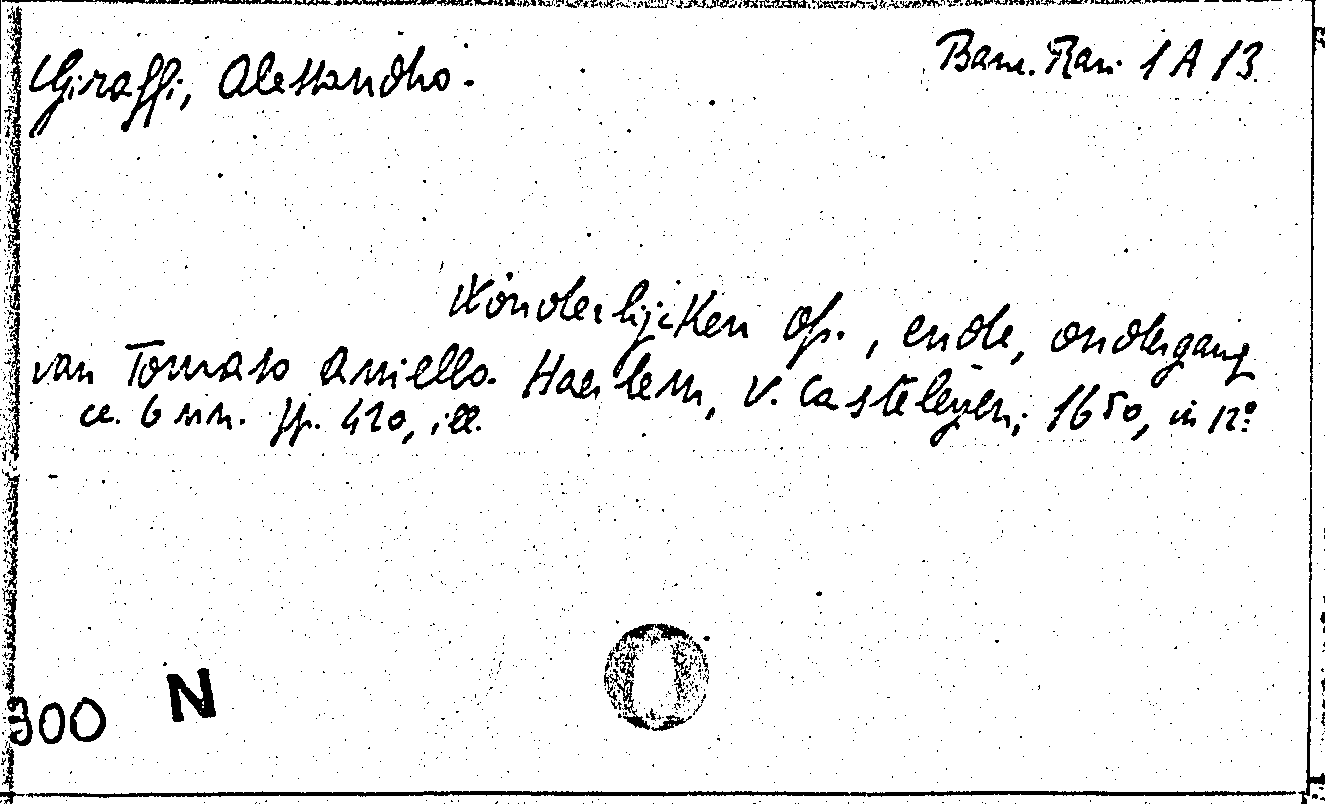 Giraffi, Alessandro.
Banc. Rari 1 A 13
Wonderlijcken Op., ende, ondergang
van Tomaso Aniello. Haerlem, V. Casteleyen, 1650, in 12º
cc. 6 nn. pp. 420, ill.
900 N